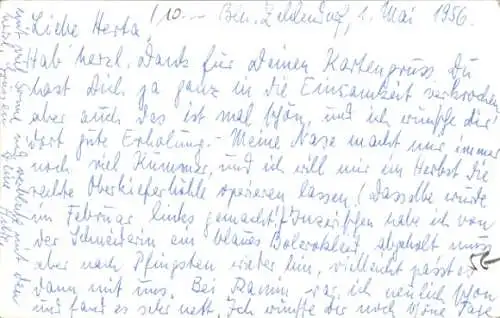 (10.- Bln. Zehlendorf, 1. Mai 1956.
Liebe Herta,
Hab herzl. Dank für deinen Kartengruss. Du
hast Dich ja ganz in die Einsamkeit verkrochen
aber auch das ist mal schön, und ich wünsche dir
dort gute Erholung. - Meine Nase macht mir immer
noch viel Kummer, und ich will mir im Herbst die
rechte Oberkieferhöhle operieren lassen (dasselbe wurde
im Februar links gemacht!) Inzwischen habe ich von
der Schneiderin ein blaues abgeholt muss
aber nach Pfingsten wieder hin, vielleicht passt es
dann mit uns. Bei war ich neulich schon
und fand es sehr nett. Ich wünsche dir noch schöne Tage
mit viel Sonne und den
herzl. Grüssen